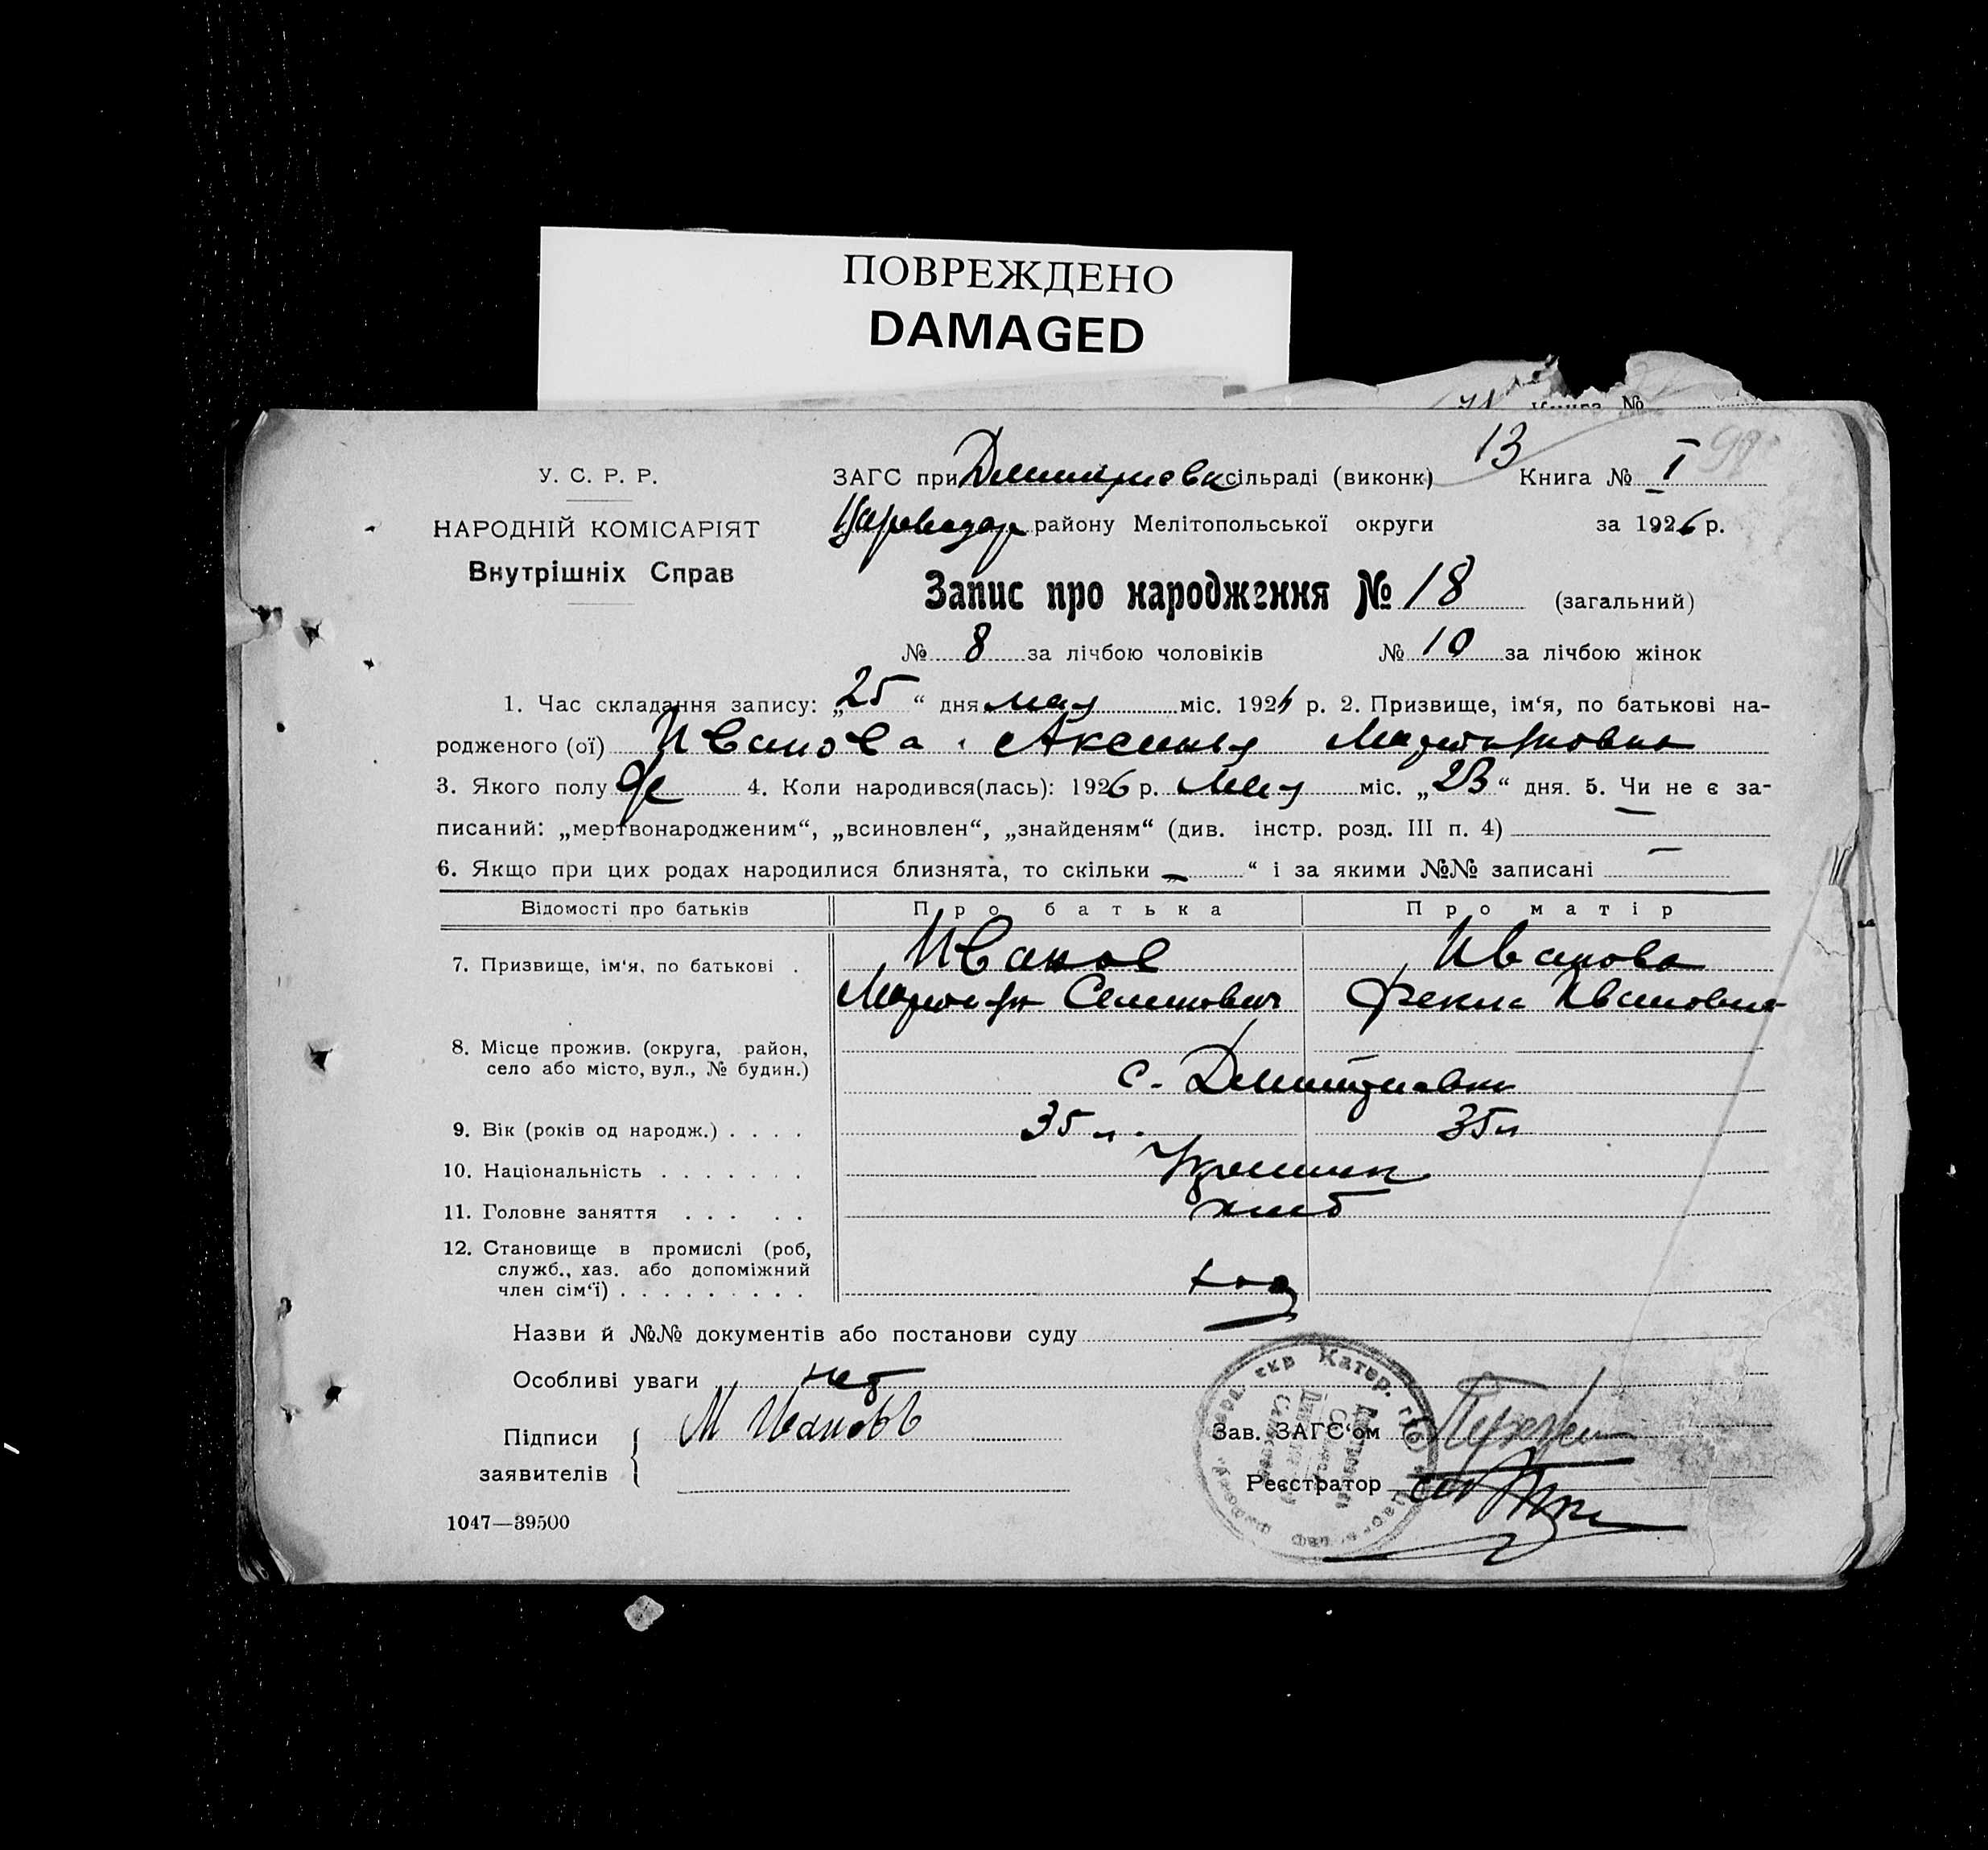 ПОВРЕЖДЕНО
DAMAGED
Книга №
13
У. С. Р. Р.
ЗАГС при Дмитриевк сільраді (виконк) Книга № I 99
НАРОДНІЙ КОМІСАРІЯТ
Внутрішніх Справ
району Мелітопольської округи за 1926 р.
Запис про народження № 18 (загальний)
№ 8 за лічбою чоловіків № 10 за лічбою жінок
1. Час складання запису: „25“ дня мая міс. 1926 р. 2. Призвище, ім‘я, по батькові на-
родженого (ої) Иванова Аксинья
3. Якого полу 4. Коли народився(лась): 1926 р. Мая міс. „23“ дня. 5. Чи не є за-
писаний: „мертвонародженим“, „всиновлен“, „знайденям“ (див. інстр. розд. III п. 4) —
6. Якщо при цих родах народилися близнята, то скільки „—“ і за якими №№ записані —
Відомості про батьків Про батька Про матір
7. Призвище, ім‘я, по батькові . Иванов Иванова
Семенович Фекла Ивановна
8. Місце прожив. (округа, район,
село або місто, вул., № будин.) с. Дмитриевка
9. Вік (років од народж.) . . . . 35 л. 35 л
10. Національність . . . . . . . Украинк
11. Головне заняття . . . . . хлеб
12. Становище в промислі (роб,
служб., хаз. або допоміжний
член сім‘ї) . . . . . . . . . хоз
Назви й №№ документів або постанови суду
Особливі уваги нет
Підписи
заявителів
М Иванов
Зав. ЗАГС‘ом
Реєстратор
Катер. губ
1047—39500